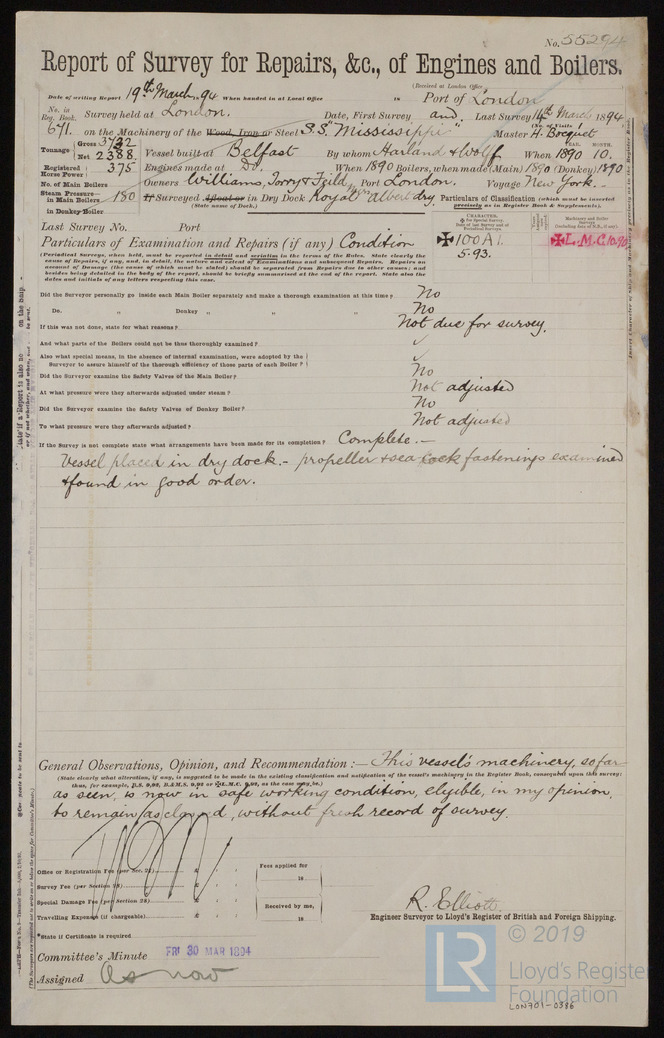 No. 55294
Report of Survey for Repairs, &c., of Engines and Boilers.
(Received at London Office
Date of writing Report 19th March 94 When handed in at Local Office 18 Port of London
No. in Reg. Book. Survey held at London. Date, First Survey and. Last Survey 14th March 1894
(No. of Visits
671. on the Machinery of the Wood, Iron or Steel S.S. "Mississippi" Master H. Bocquet
Tonnage Gross 3732 Net 2388 Vessel built at Belfast By whom Harland & Wolff When YEAR. 1890 MONTH. 10.
Registered Horse Power 375 Engines made at Do. When 1890 Boilers, when made (Main) 1890 (Donkey) 1890
No. of Main Boilers Owners Williams, Torry & Feild, Port London. Voyage New York.
Steam Pressure in Main Boilers 180 If Surveyed Afloat or in Dry Dock Royal Albert dry
(State name of Dock.)
in Donkey Boiler
Particulars of Classification (which must be inserted precisely as in Register Book & Supplements).
Last Survey No. Port
Particulars of Examination and Repairs (if any) Condition
CHARACTER.
✠100A1.
5.93.
Machinery and Boiler Surveys
✠L.M.C. 10.90
(Periodical Surveys, when held, must be reported in detail and seriatim in the terms of the Rules. State clearly the
cause of Repairs, if any, and, in detail, the nature and extent of Examinations and subsequent Repairs. Repairs on
account of Damage (the cause of which must be stated) should be separated from Repairs due to other causes; and
besides being detailed in the body of the report, should be briefly summarised at the end of the report. State also the
dates and initials of any letters respecting this case.
Did the Surveyor personally go inside each Main Boiler separately and make a thorough examination at this time? No
Do. " Donkey " " " No
If this was not done, state for what reasons? Not due for survey.
And what parts of the Boilers could not be thus thoroughly examined? ✓
Also what special means, in the absence of internal examination, were adopted by the
Surveyor to assure himself of the thorough efficiency of those parts of each Boiler? ✓
Did the Surveyor examine the Safety Valves of the Main Boiler? No
At what pressure were they afterwards adjusted under steam? Not adjusted
Did the Surveyor examine the Safety Valves of Donkey Boiler? No
To what pressure were they afterwards adjusted? Not adjusted
If the Survey is not complete state what arrangements have been made for its completion? Complete.-
Vessel placed in dry dock.- propeller & sea cock fastenings examined
& found in good order.
General Observations, Opinion, and Recommendation :— This vessel's machinery, so far
(State clearly what alteration, if any, is suggested to be made in the existing classification and notification of the vessel's machinery in the Register Book, consequent upon this survey;
as seen, is now in safe working condition, eligible, in my opinion,
to remain as classed, without fresh record of survey.
Office or Registration Fee (per Sec. 27) £
Survey Fee (per Section 28) £
Special Damage Fee (per Section 28) £
Travelling Expenses (if chargeable) £
Fees applied for
18
Received by me,
18
R. Elliott,
Engineer Surveyor to Lloyd's Register of British and Foreign Shipping.
*State if Certificate is required
Committee's Minute FRI 30 MAR 1894
Assigned As now
© 2019
LR
Lloyd's Register
Foundation
LON701-0386